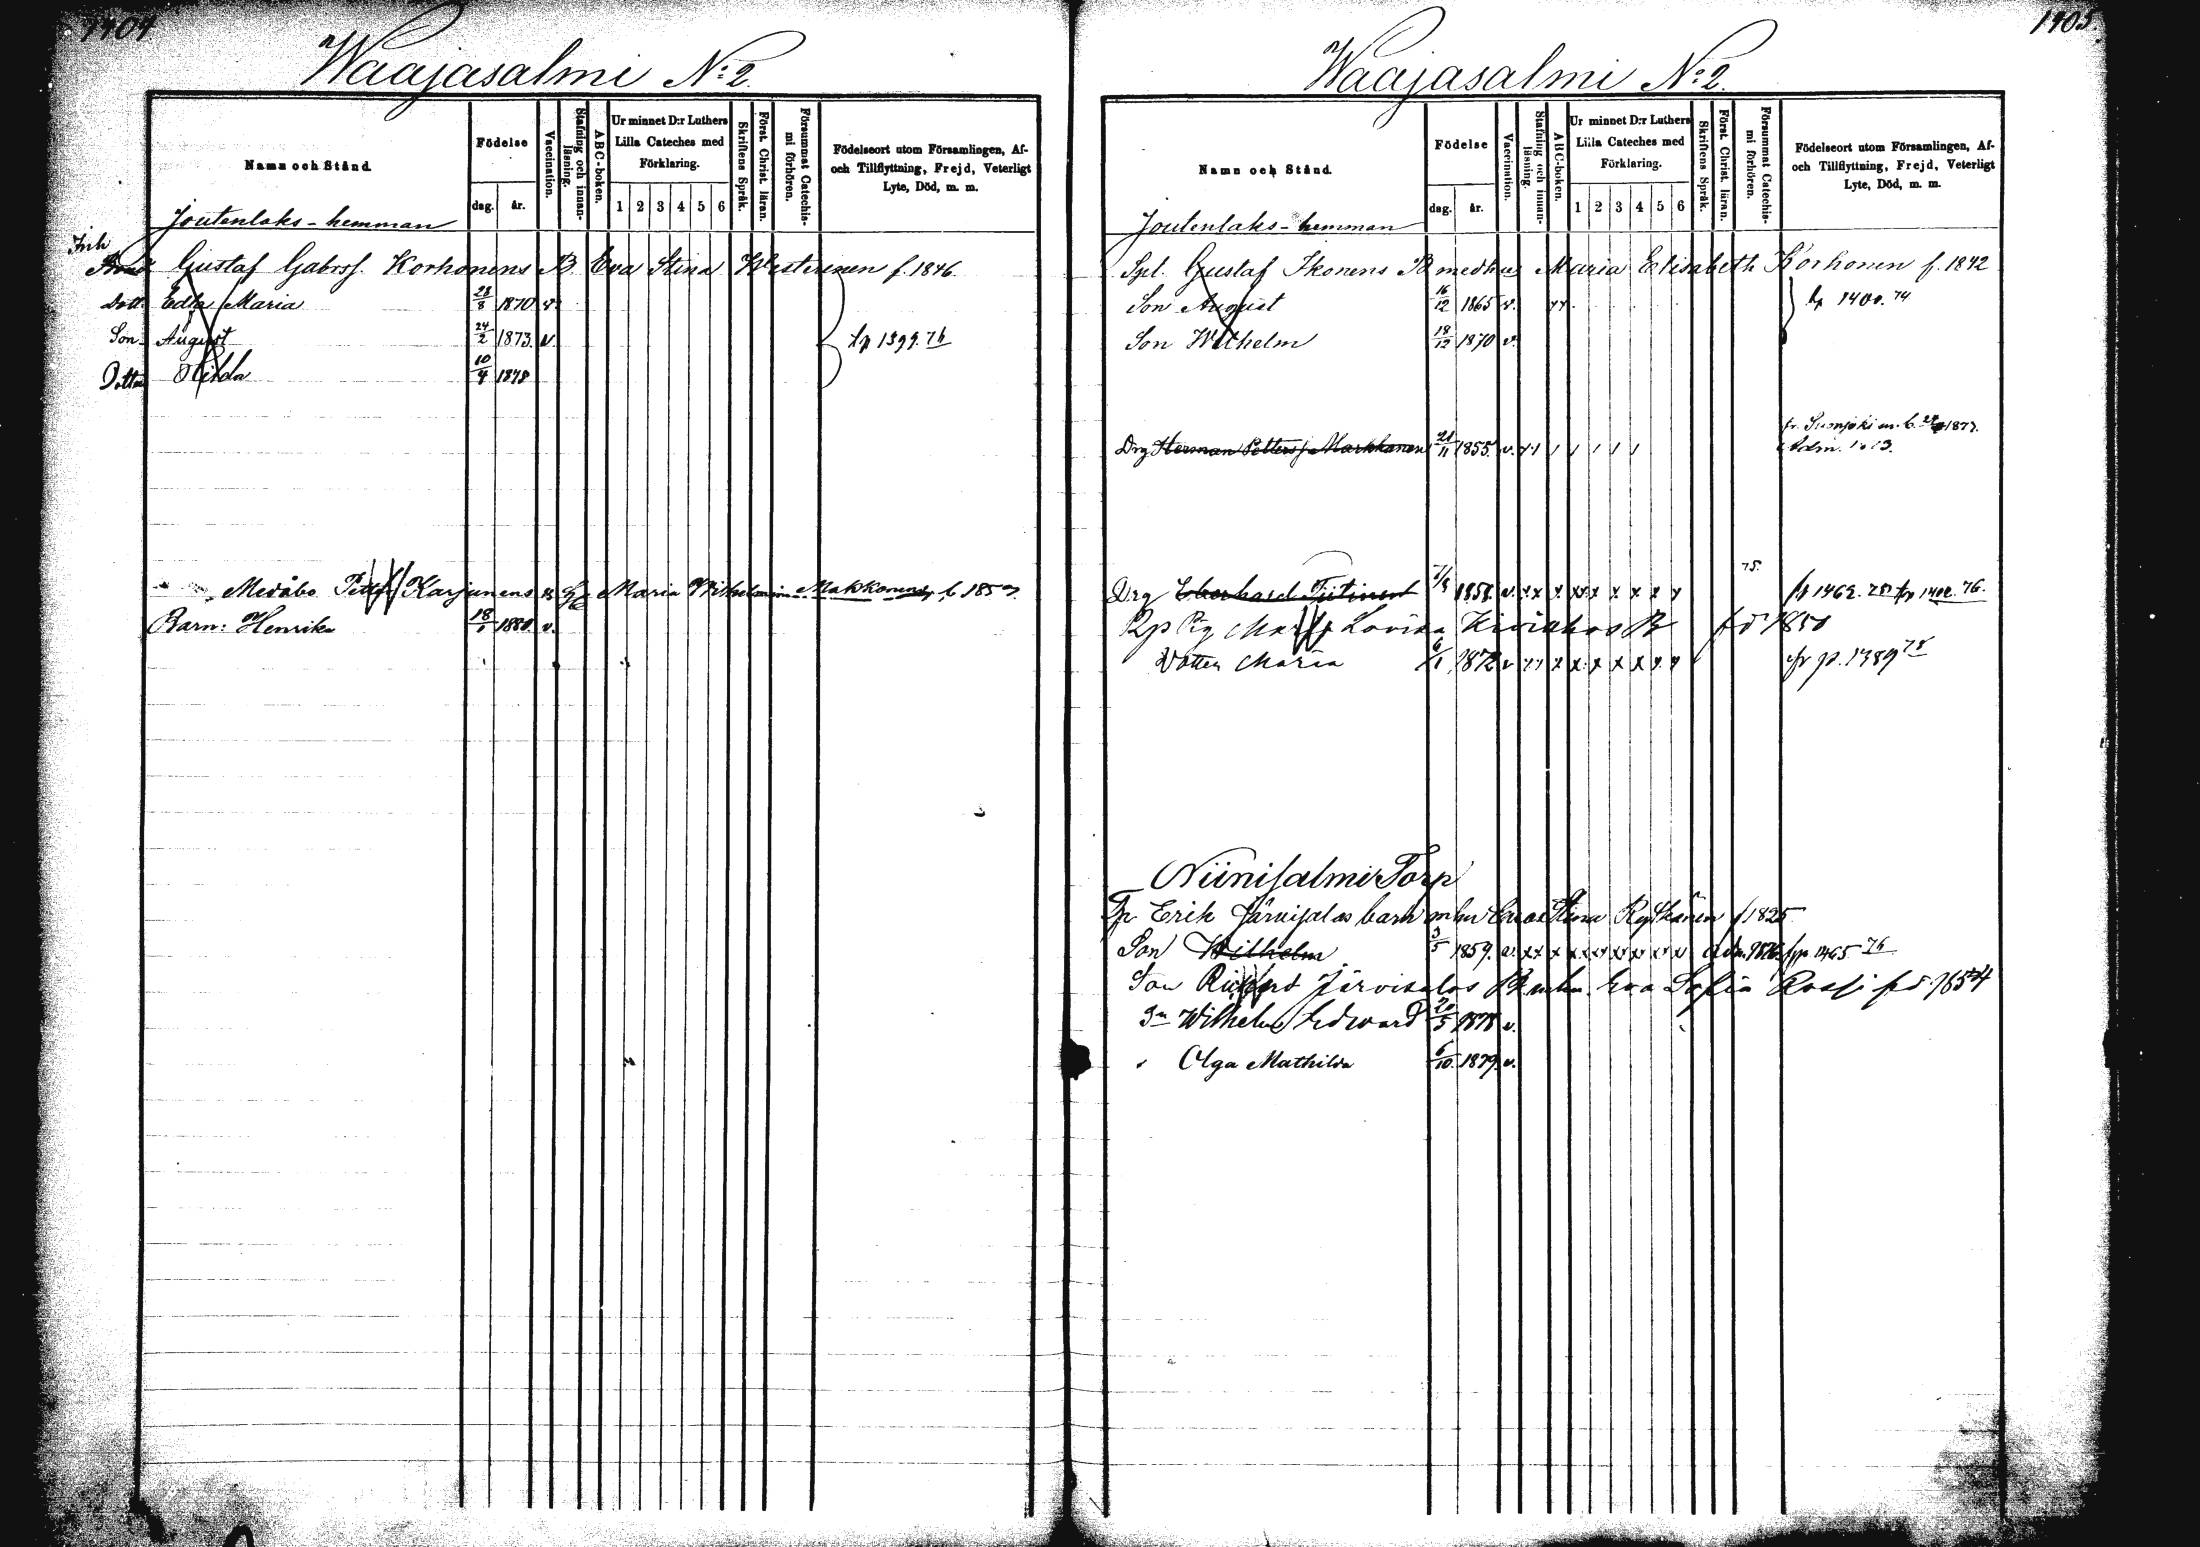 1404
Waajasalmi No. 2.
Namn och Stånd
Födelse
dag.
år.
Vaccination.
Stafning och innan-läsning.
ABC-boken.
Ur minnet D:r Luthers
Lilla Cateches med
Förklaring.
1 2 3 4 5 6
Skriftens Språk.
Först. Christ. läran.
Försummat Catechis-mi förhören.
Födelseort utom Församlingen, Af-
och Tillflyttning, Frejd, Veterligt
Lyte, Död, m. m.
Joutenlaks - hemman
Inh
Gustaf Gabrsf. Korhonens B. Eva Stina Westerinen f. 1846
Dott. Edla Maria 28/8 1870 v.
Son August 24/2 1873. v. tp 1399. 76
Dotter Hilda 10/4 1878
Medåbo Pett Karjunens B. h Maria Wilhelmina Makkonen f. 185
Barn: Henrik 18 1880 v.
1405.
Waajasalmi No. 2.
Namn och Stånd.
Födelse
dag.
år.
Vaccination.
Stafning och innan-läsning.
ABC-boken.
Ur minnet D:r Luthers
Lilla Cateches med
Förklaring.
1 2 3 4 5 6
Skriftens Språk.
Först. Christ. läran.
Försummat Catechis-mi förhören.
Födelseort utom Församlingen, Af-
och Tillflyttning, Frejd, Veterligt
Lyte, Död, m. m.
Joutenlaks - hemman
Spl. Gustaf Ikonens B med hu Maria Elisabeth Korhonen f. 1842
Son August 16/12 1865 v. tp 1400. 74
Son Wilhelm 18/12 1870 v.
fr. Suonjoki m. b. 1873.
Drg Herman Petters. Markkanen 21/11 1855. v. Adm.
75.
Drg Eberhard Tiitinen 1858. v. xx x xx x x x x x fp 1462. 75 tp 1402. 76.
Pig Maria Lovisa B föd 1850
Dotter Maria 1872 v x x x x x x fr p. 1389 78
Niinisalmi Torp
Tp Erik Järvisalos barn m hu Eva Stina Rytkönen f 1825
Son Wilhelm 3/5 1859. v. xx x xx xx xx xx x x Adm. 1876. tp 1465 76
Son Rikhard Järvisalos B m hu. Eva Sofia Rossi föd 1854
Sn Wilhelm Edward 20/5 1878 v.
Olga Mathilda 6/10 1879. v.